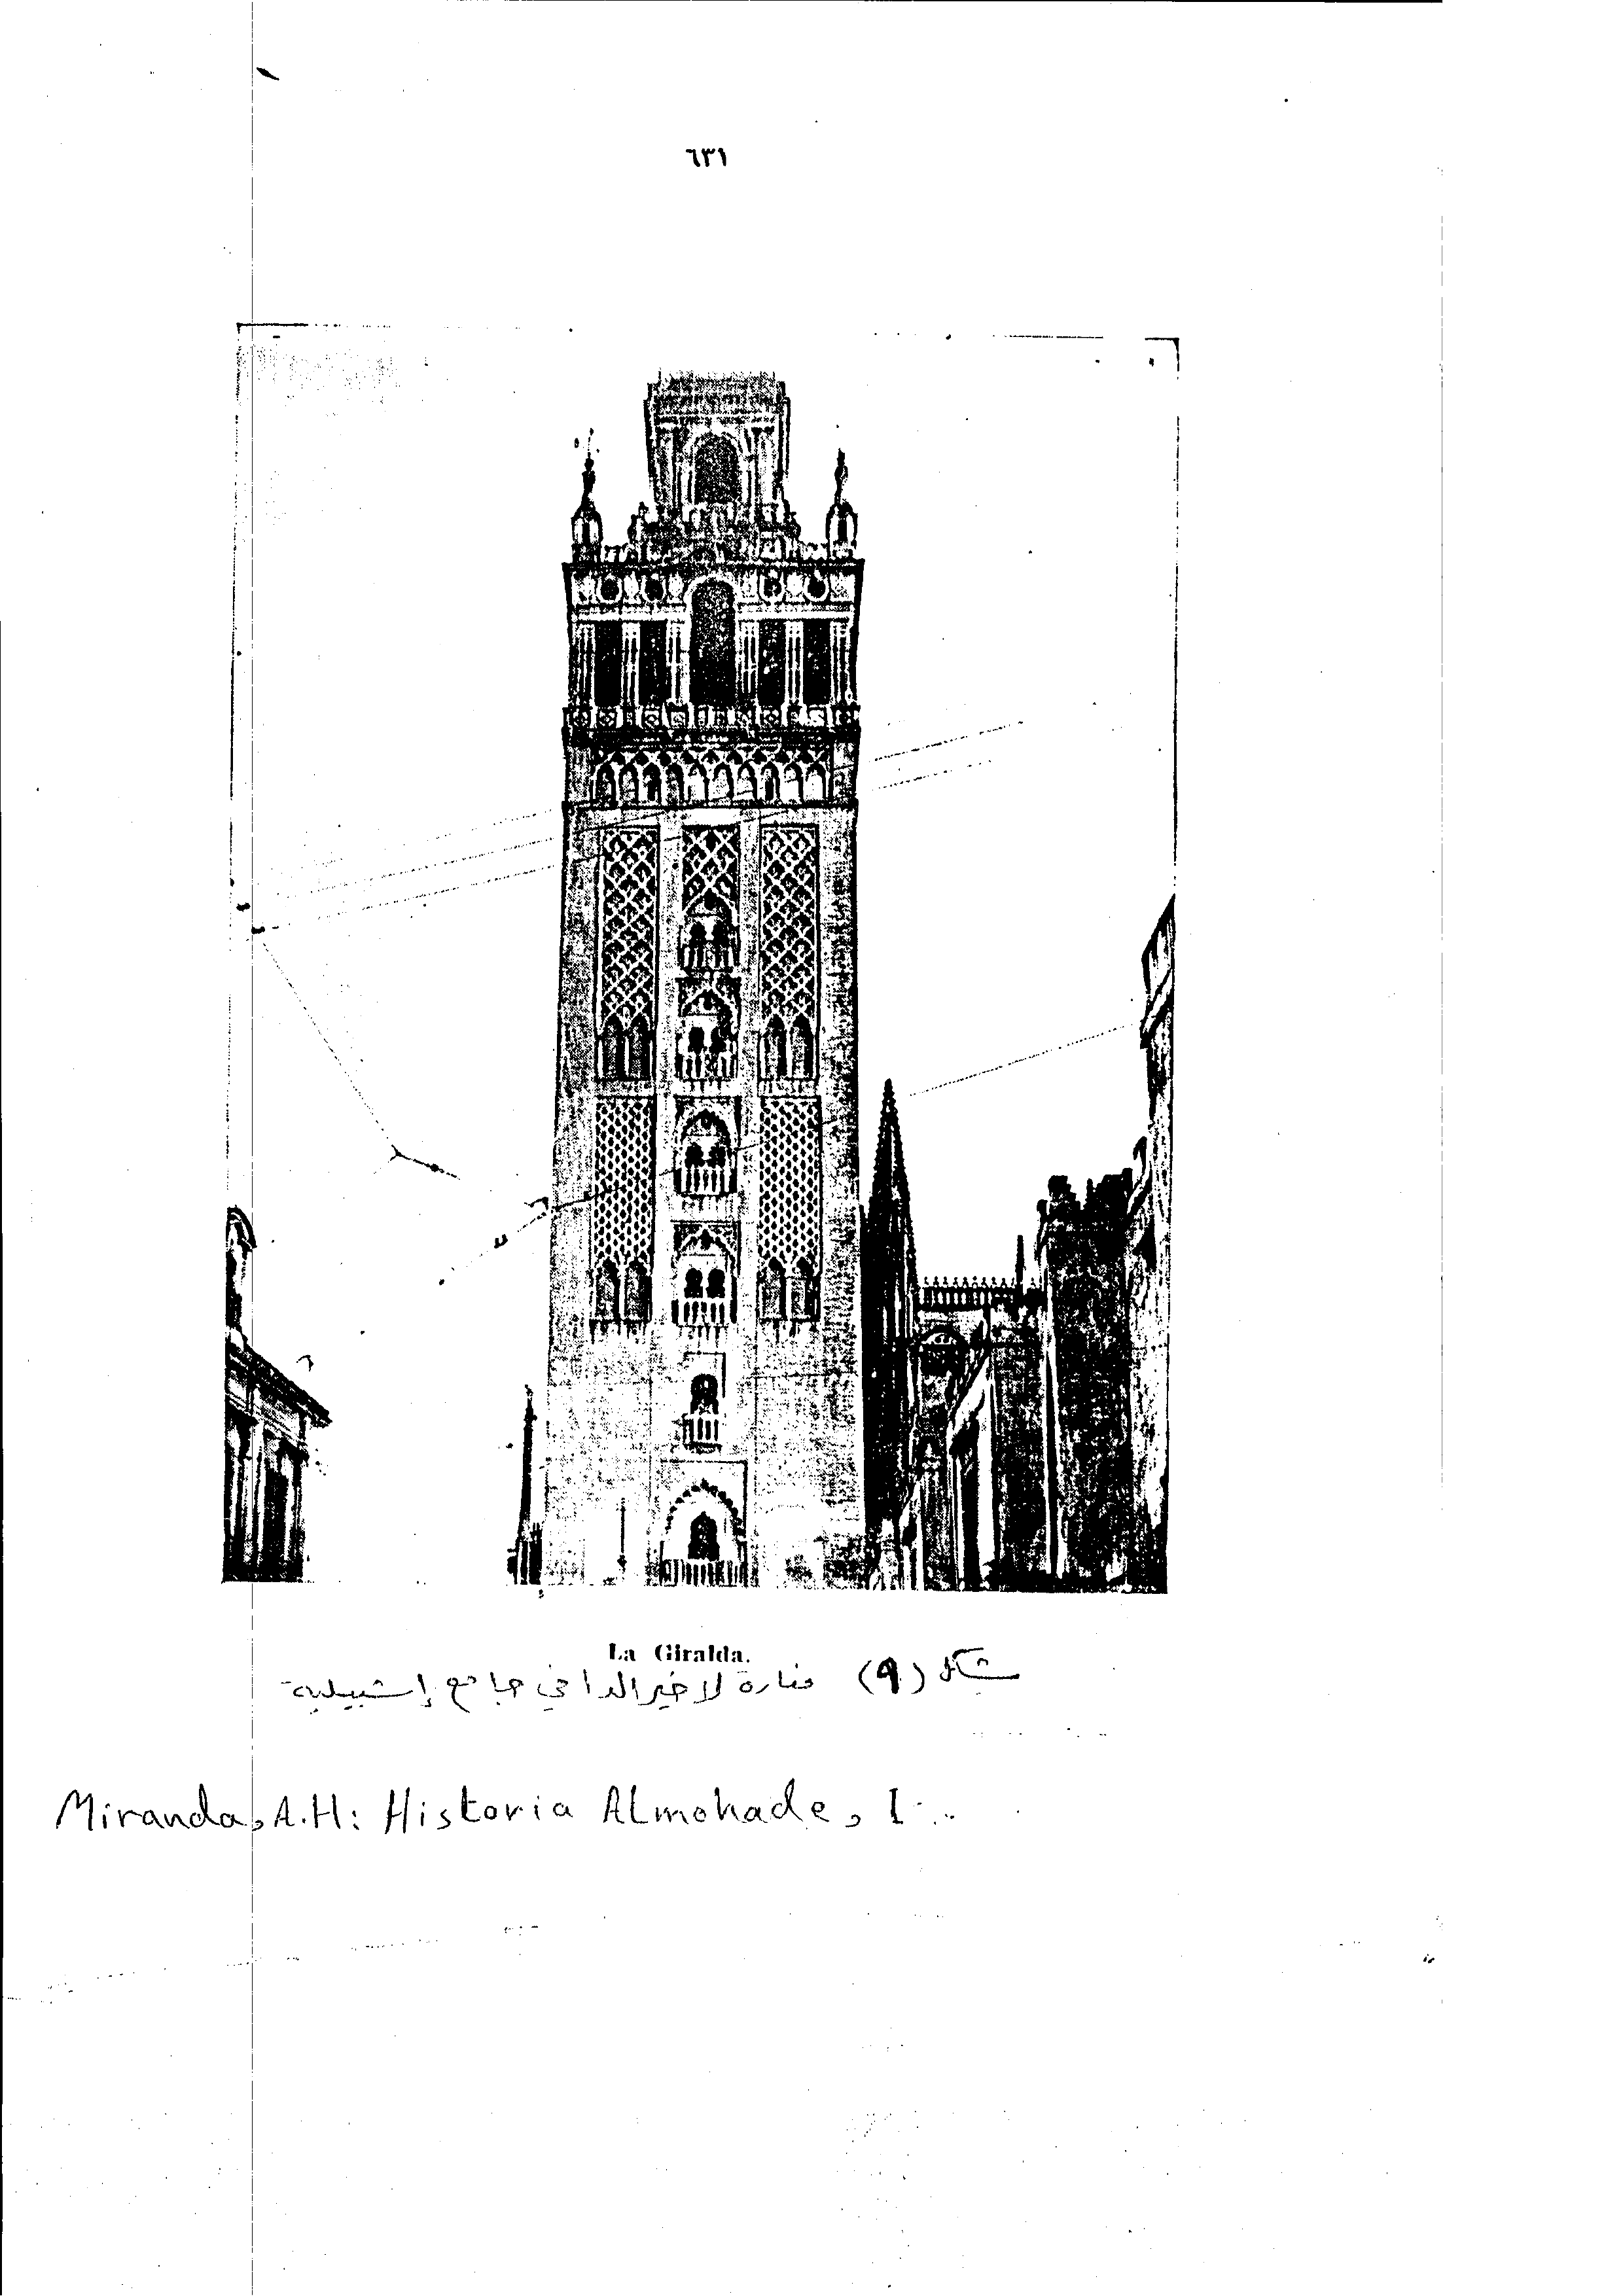 ٦٣١
La Giralda.
شكل (٩) منارة لاخيرالدا في جامع إشبيلية
Miranda, A.H: Historia Almohade, I